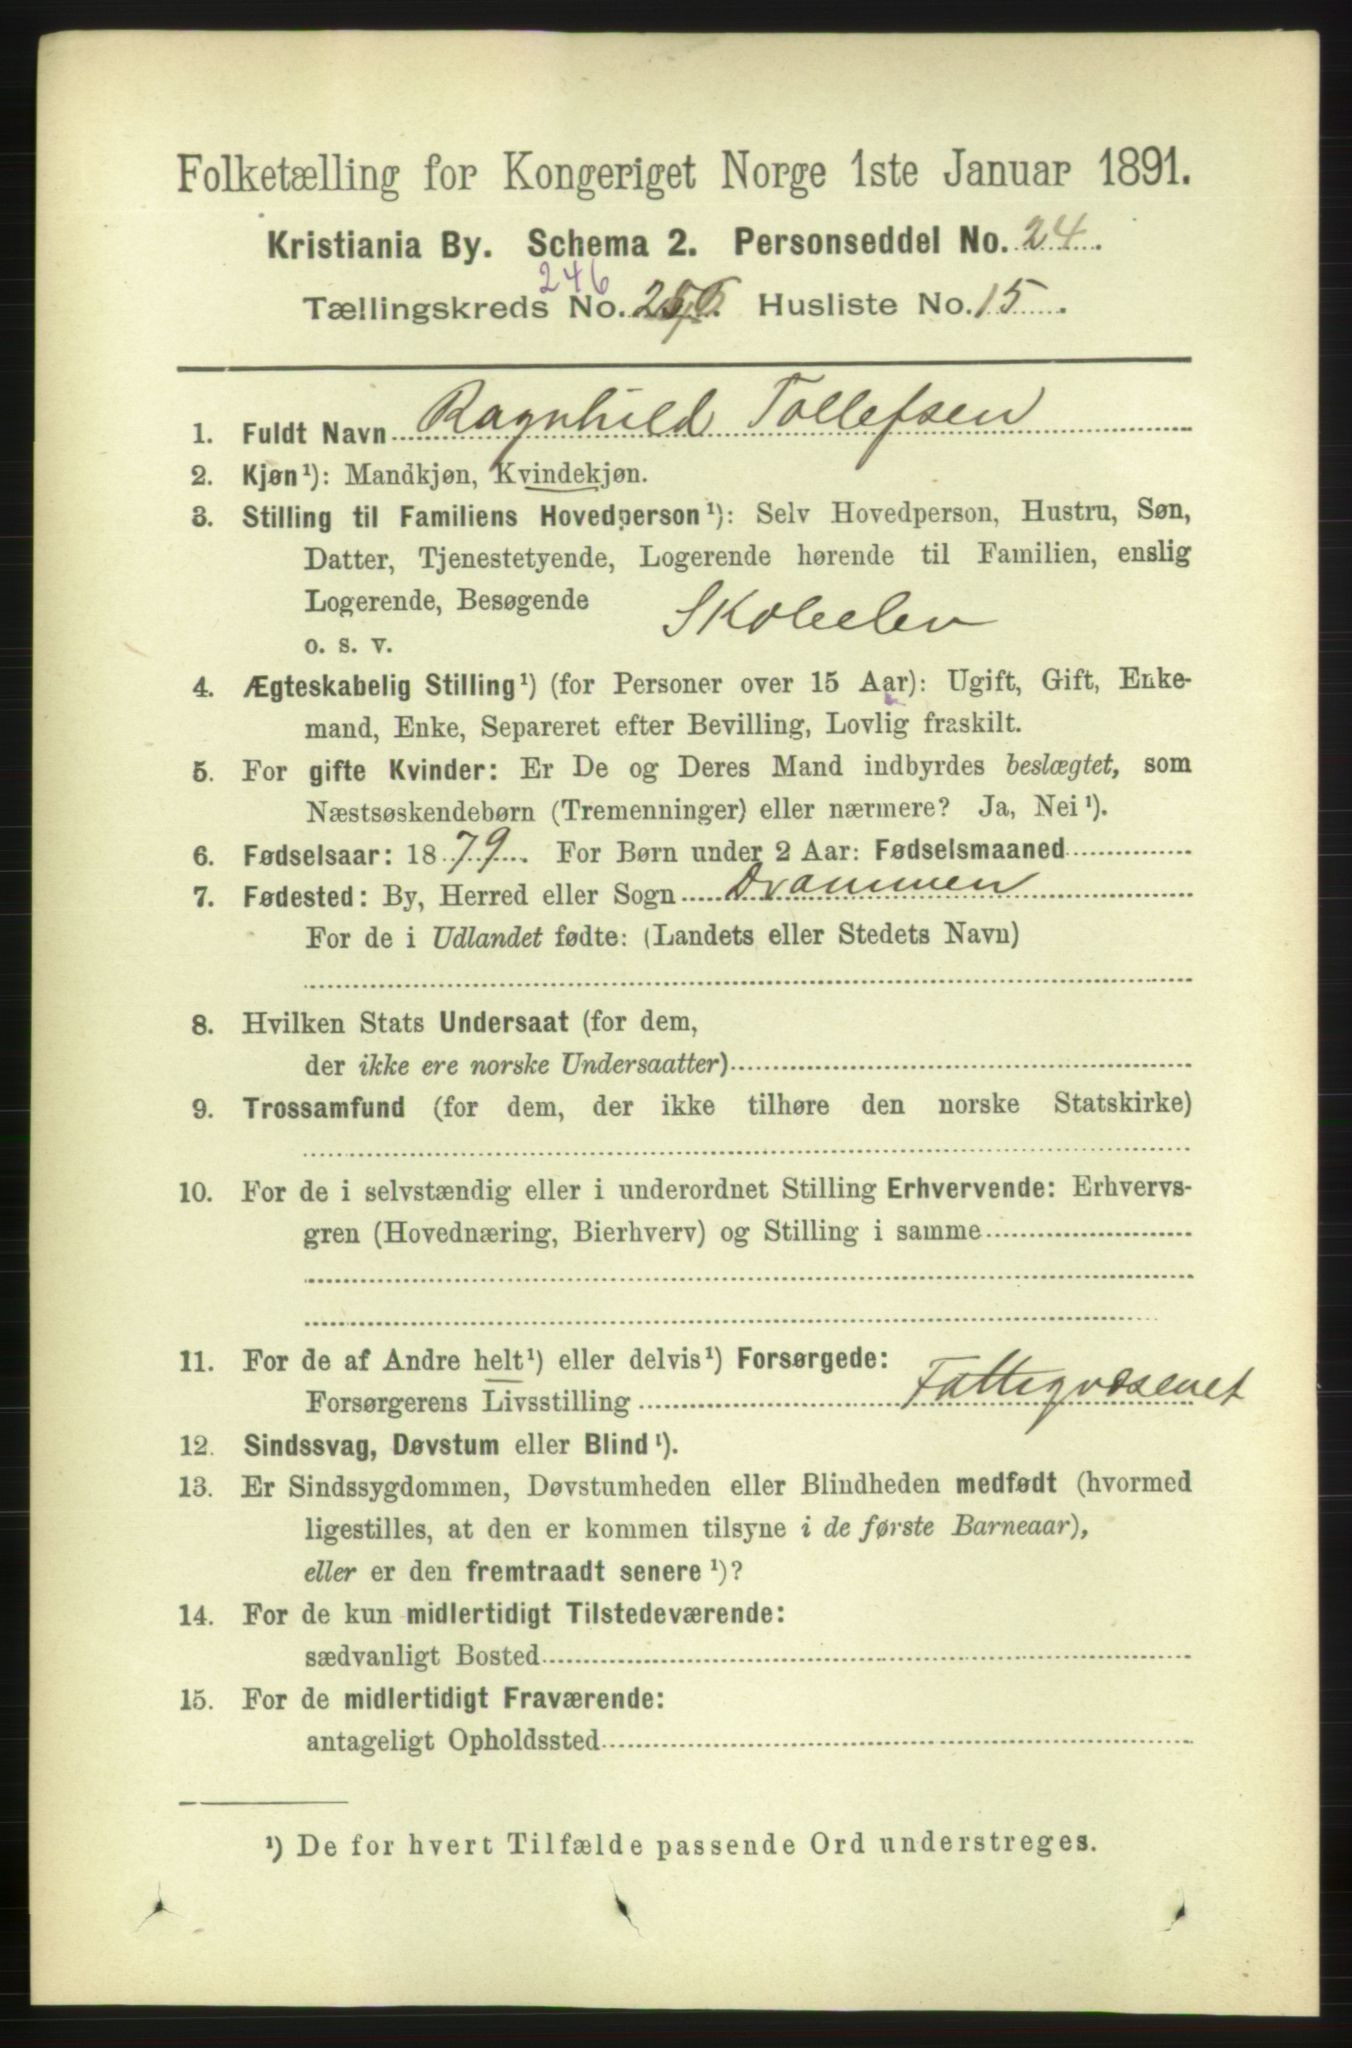 Folketælling for Kongeriget Norge 1ste Januar 1891.
Kristiania By. Schema 2. Personseddel No. 24.
246
Tællingskreds No. Husliste No. 15.
1. Fuldt Navn Ragnhild Tollefsen
2. Kjøn¹): Mandkjøn, Kvindekjøn.
3. Stilling til Familiens Hovedperson¹): Selv Hovedperson, Hustru, Søn,
Datter, Tjenestetyende, Logerende hørende til Familien, enslig
Logerende, Besøgende Skoleelev
o. s. v.
4. Ægteskabelig Stilling¹) (for Personer over 15 Aar): Ugift, Gift, Enke-
mand, Enke, Separeret efter Bevilling, Lovlig fraskilt.
5. For gifte Kvinder: Er De og Deres Mand indbyrdes beslægtet, som
Næstsøskendebørn (Tremenninger) eller nærmere? Ja, Nei¹).
6. Fødselsaar: 1879. For Børn under 2 Aar: Fødselsmaaned
7. Fødested: By, Herred eller Sogn Drammen
For de i Udlandet fødte: (Landets eller Stedets Navn)
8. Hvilken Stats Undersaat (for dem,
der ikke ere norske Undersaatter)
9. Trossamfund (for dem, der ikke tilhøre den norske Statskirke)
10. For de i selvstændig eller i underordnet Stilling Erhvervende: Erhvervs-
gren (Hovednæring, Bierhverv) og Stilling i samme
11. For de af Andre helt¹) eller delvis¹) Forsørgede:
Forsørgerens Livsstilling Fattigvæsenet
12. Sindssvag, Døvstum eller Blind¹).
13. Er Sindssygdommen, Døvstumheden eller Blindheden medfødt (hvormed
ligestilles, at den er kommen tilsyne i de første Barneaar),
eller er den fremtraadt senere¹)?
14. For de kun midlertidigt Tilstedeværende:
sædvanligt Bosted
15. For de midlertidigt Fraværende:
antageligt Opholdssted
¹) De for hvert Tilfælde passende Ord understreges.